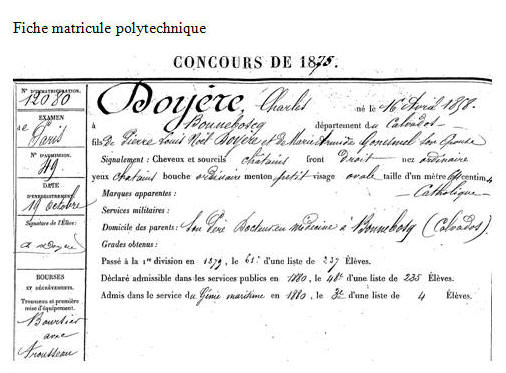 Fiche matricule polytechnique
CONCOURS DE 1875.
N° D'IMMATRICULATION.
12080
EXAMEN
de
Paris
N° D'ADMISSION.
49
DATE
D'ENREGISTREMENT.
19 octobre
Signature de l'Élève:
BOURSES
ET DÉGRÈVEMENTS.
Trousseau et première
mise d'équipement.
Boursier
avec
trousseau
Doyère, Charles né le 16 Avril 1858.
à Bonnebosq département du Calvados
fils de Pierre Louis Noël Doyère et de Marie son épouse
Signalement : Cheveux et sourcils châtains front droit nez ordinaire
yeux châtains bouche ordinaire menton petit visage ovale taille d'un mètre centim.
Marques apparentes : Catholique
Services militaires :
Domicile des parents : Son Père Docteur en médecine à Bonnebosq (Calvados)
Grades obtenus :
Passé à la 1re division en 1879, le 61e d'une liste de 237 Élèves.
Déclaré admissible dans les services publics en 1880, le 48e d'une liste de 235 Élèves.
Admis dans le service du Génie maritime en 1880, le 3e d'une liste de 4 Élèves.